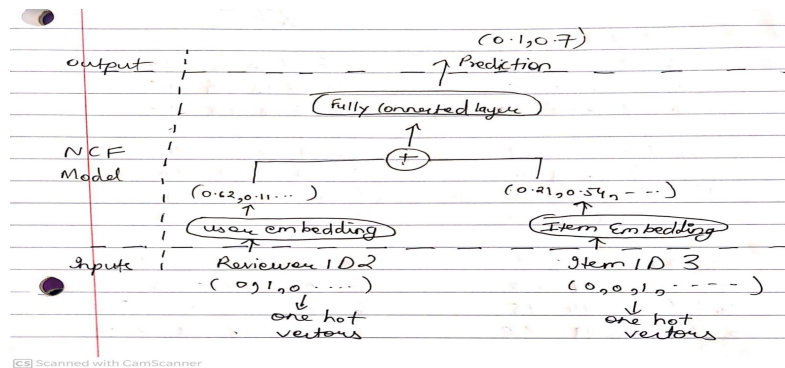 (0.1,0.7)
output
Prediction
Fully connected layer
+
NCF
Model
(0.62,0.11...)
(0.21,0.54, - --)
user embedding
Item Embedding
Inputs
Reviewer ID2
Item ID 3
(0,1,0 ....)
(0,0,1, - - - -)
one hot
vectors
one hot
vectors
CS Scanned with CamScanner